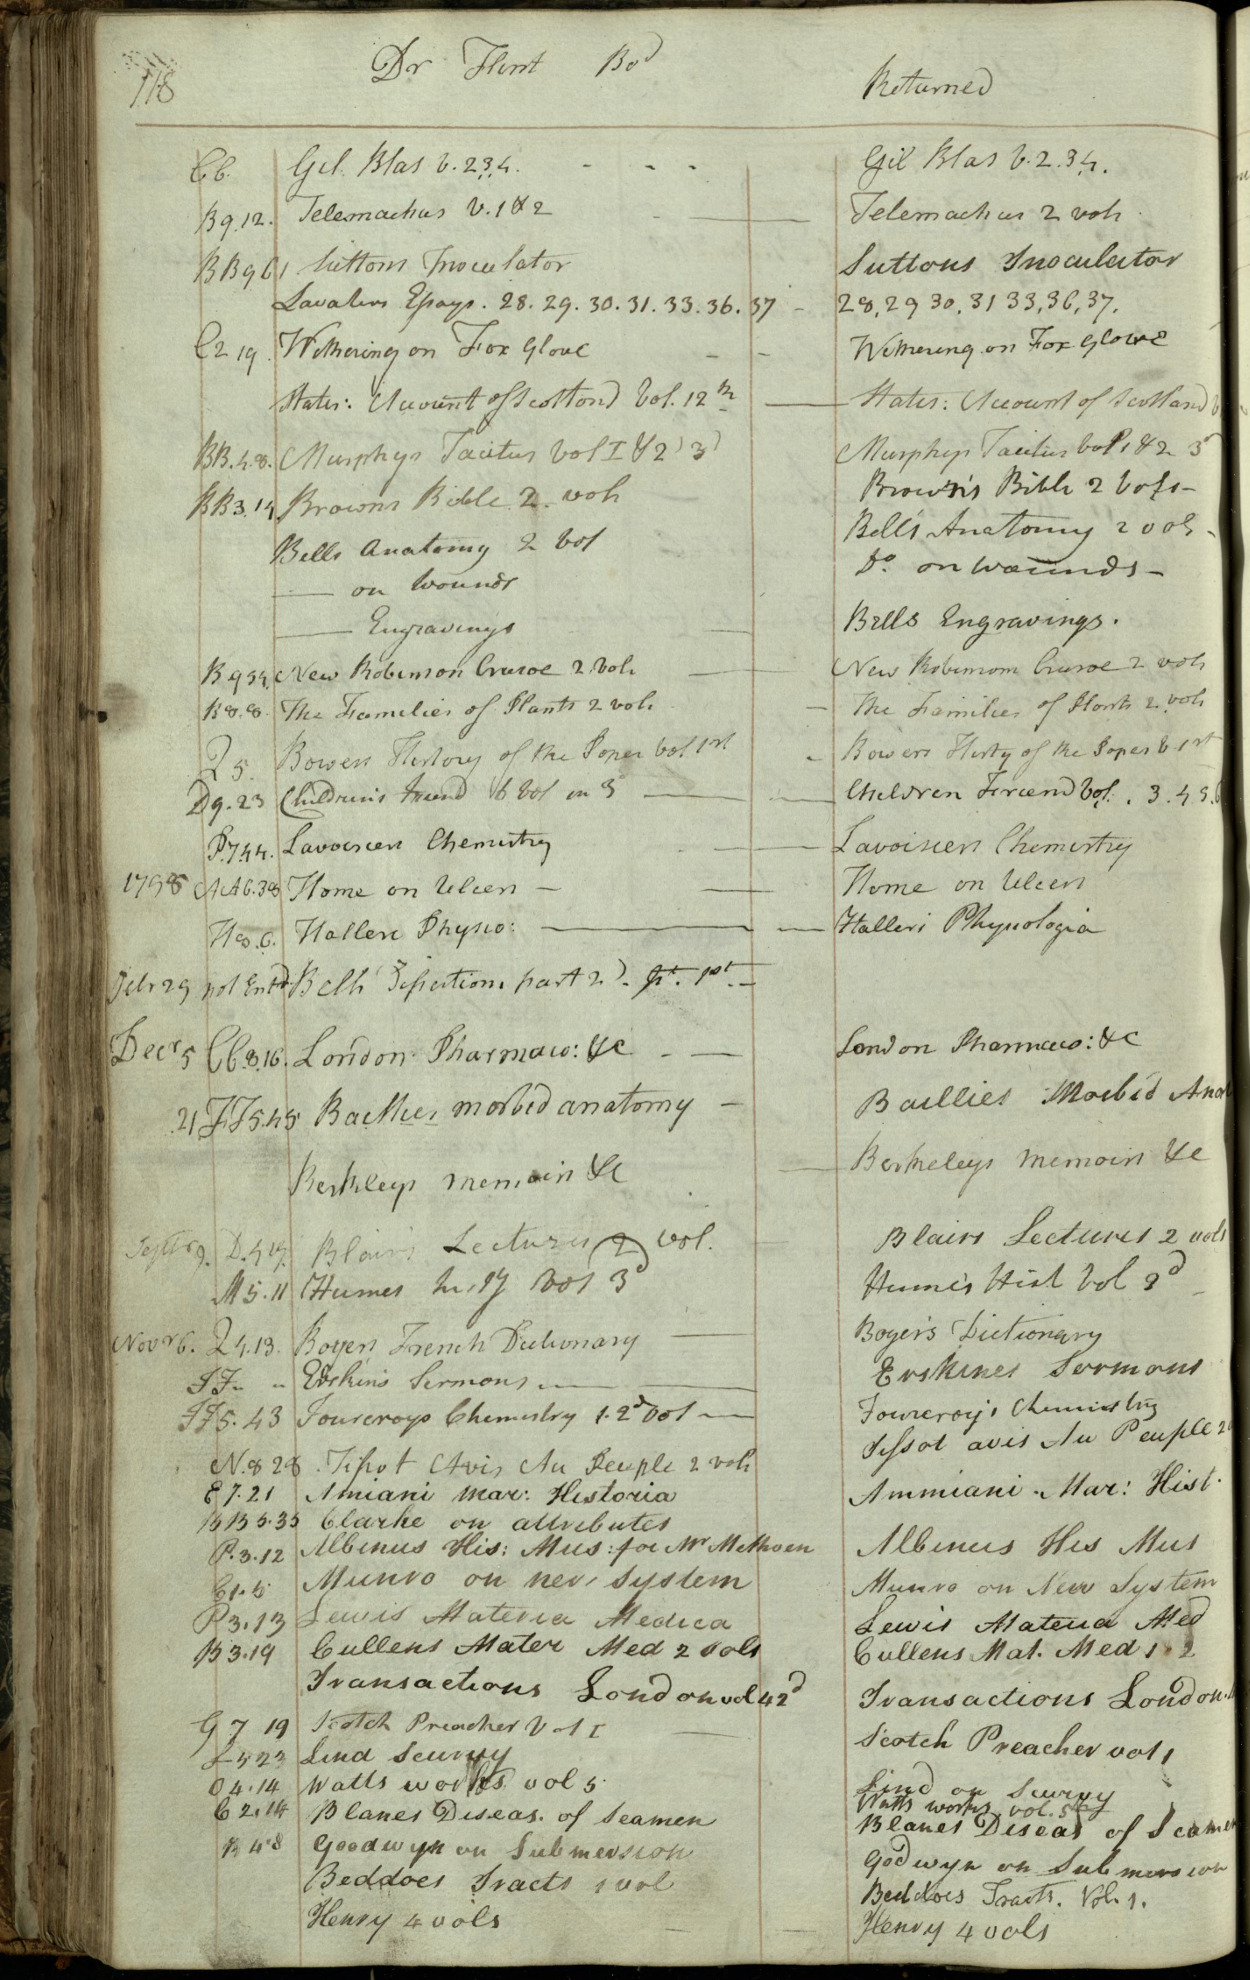 118 Dr Flint Bod Returned
C6. Gil Blas v. 2.3.4. Gil Blas V. 2. 3 4.
B9.12. Telemachus V. 1 & 2 Telemachus 2 vols
BB9 Suttons Inoculator Suttons Inoculator
Lavaters Essays. 28. 29. 30. 31. 33. 36. 37 28, 29 30. 31 33, 36, 37.
C2 19. Withering on Fox Glove Withering on Fox Glove
Statis: Account of Scotland Vol. 12th Statis: Account of Scotland
BB.4.8. Murphys Tacitus Vol I & 2d 3d Murphys Tacitus Vol 1 & 2 3d
BB3.14 Browns Bible 2 vols Brown's Bible 2 Vols
Bells Anatomy 2 Vol Bell's Anatomy 2 vols
on Wounds Do. on Wounds
Engravings Bells Engravings.
B.9 34 New Robinson Crusoe 2 Vols New Robinson Crusoe 2 vols
B8.8. The Families of Plants 2 vols The Families of Plants 2 vols
Q 5. Bowers History of the Popes Vol 1st Bowers Histy of the Popes V 1st
D9.23 Children's friend 6 Vol in 3 Children Friend Vol. 3. 4 5. 6
P.7.44. Lavoisiers Chemistry Lavoisiers Chemistry
1798 AA6.38 Home on Ulcers Home on Ulcers
H8.6. Halleri Physio: Halleri Physiologia
not Entd Bells Dissections part 2d. pt. 1st.
Decr 5 C6.8.16. London Pharmaco: &c London Pharmaco: &c
21 FF5.45 Baillies morbid anatomy Baillies Morbid Anat
Berkleys memoirs &c Berkeleys memoirs &c
Septr 9. D.4 19. Blair's Lectures 2 vol. Blairs Lectures 2 vols
M 5.11 Humes histy Vol 3d Hume's Hist Vol 3d
Novr 6. Q4.13. Boyers French Dictionary Boyer's Dictionary
FF Erskins Sermons Erskines Sermons
FF5.43 Fourcroys Chemistry 1. 2d Vol Fourcroy's Chemistry
N.8 28 Tissot Avis Au Peuple 2 vols Tissot avis Au Peuple 2
E7.21 Amiani Mar: Historia Ammiani Mar: Hist.
BB5.35 Clarke on attributes
P.3.12 Albinus His: Mus: for Mr Methven Albinus His Mus
E1.5 Munro on nerv System Munro on Nerv System
P3.13 Lewis Materia Medica Lewis Materia Med
B3.19 Cullens Mater Med 2 vols Cullens Mat. Med 1 2
Transactions London vol 42d Transactions London
G 7 19 Scotch Preacher Vol I Scotch Preacher vol 1
Lind Scurvy Lind on Scurvy
O4.14 Watts works vol 5 Watts works vol. 5th
C2.14 Blanes Diseas. of Seamen Blanes Diseas of Seamen
B 4.8 Goodwyn on Submersion Godwyn on Submersion
Beddoes Tracts 1 vol Beddoes Tracts. Vol. 1.
Henry 4 vols Henry 4 vols